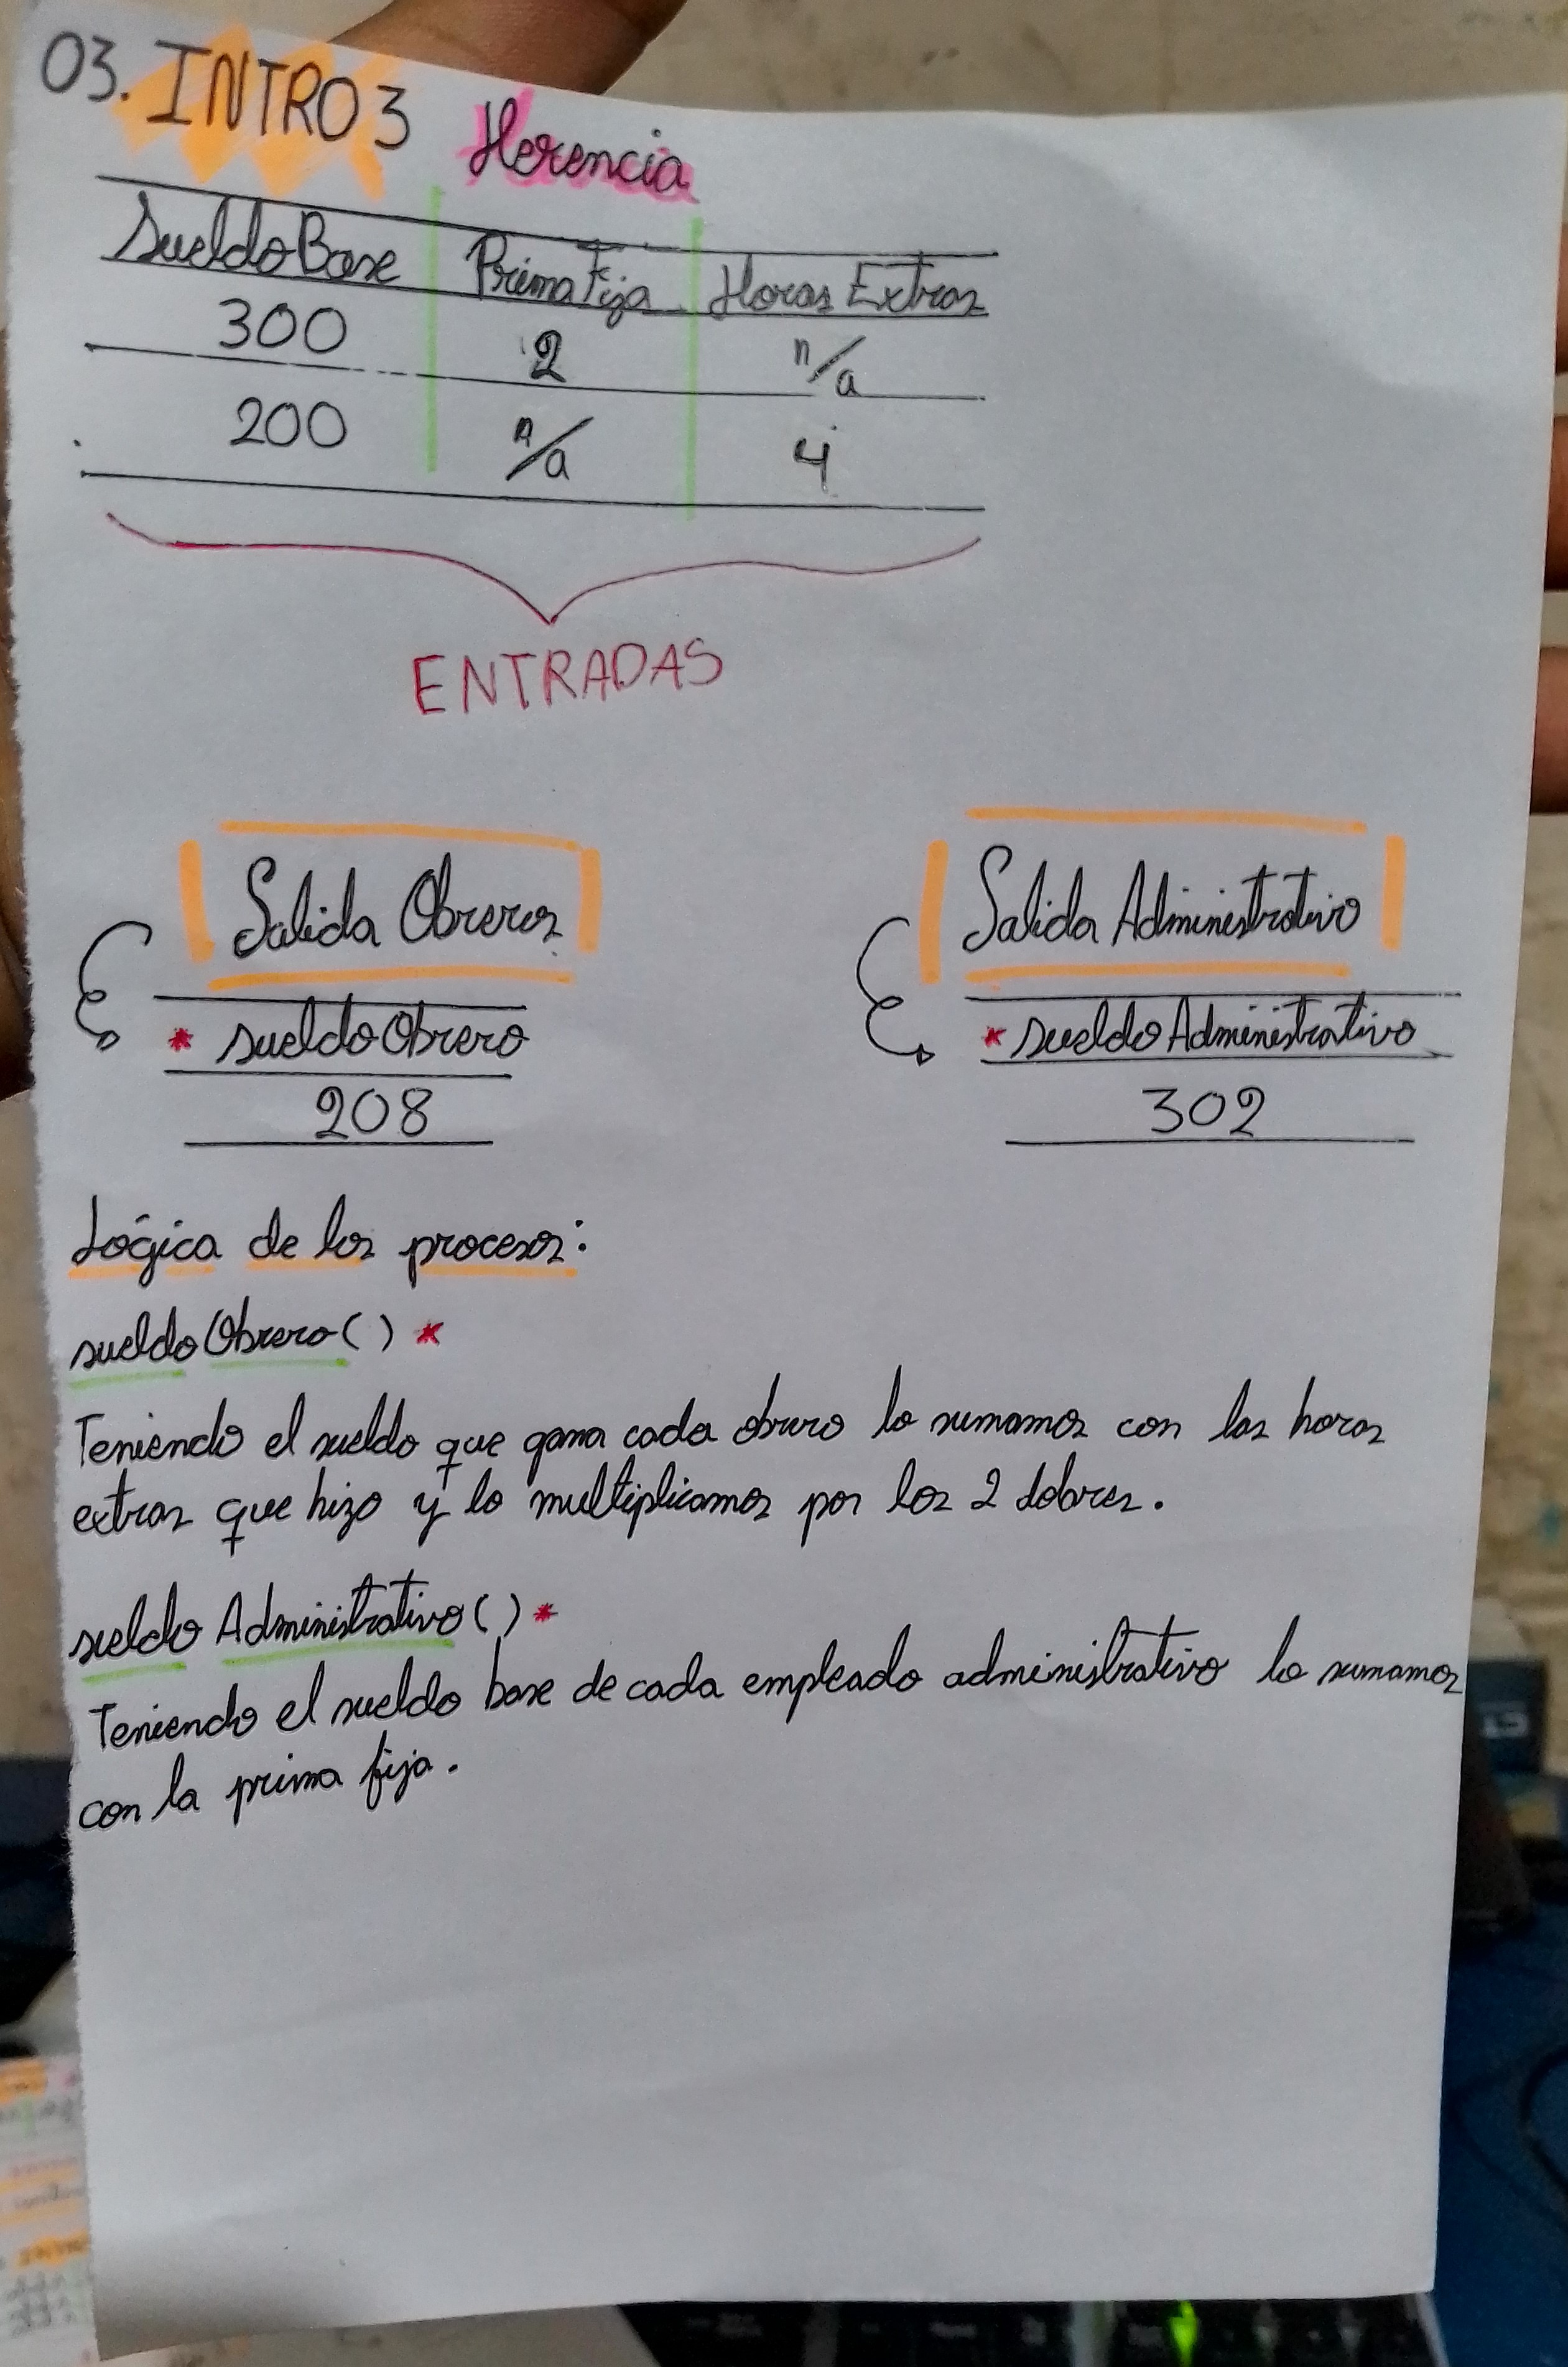 03. INTRO 3 Herencia
SueldoBase PrimaFija Horas Extras
300 2 n/a
200 n/a 4
ENTRADAS
Salida Obreros Salida Administrativo
* sueldoObrero * sueldoAdministrativo
208 302
Lógica de los procesos:
sueldoObrero() *
Teniendo el sueldo que gana cada obrero lo sumamos con las horas
extras que hizo y lo multiplicamos por los 2 dolares.
sueldo Administrativo() *
Teniendo el sueldo base de cada empleado administrativo lo sumamos
con la prima fija.